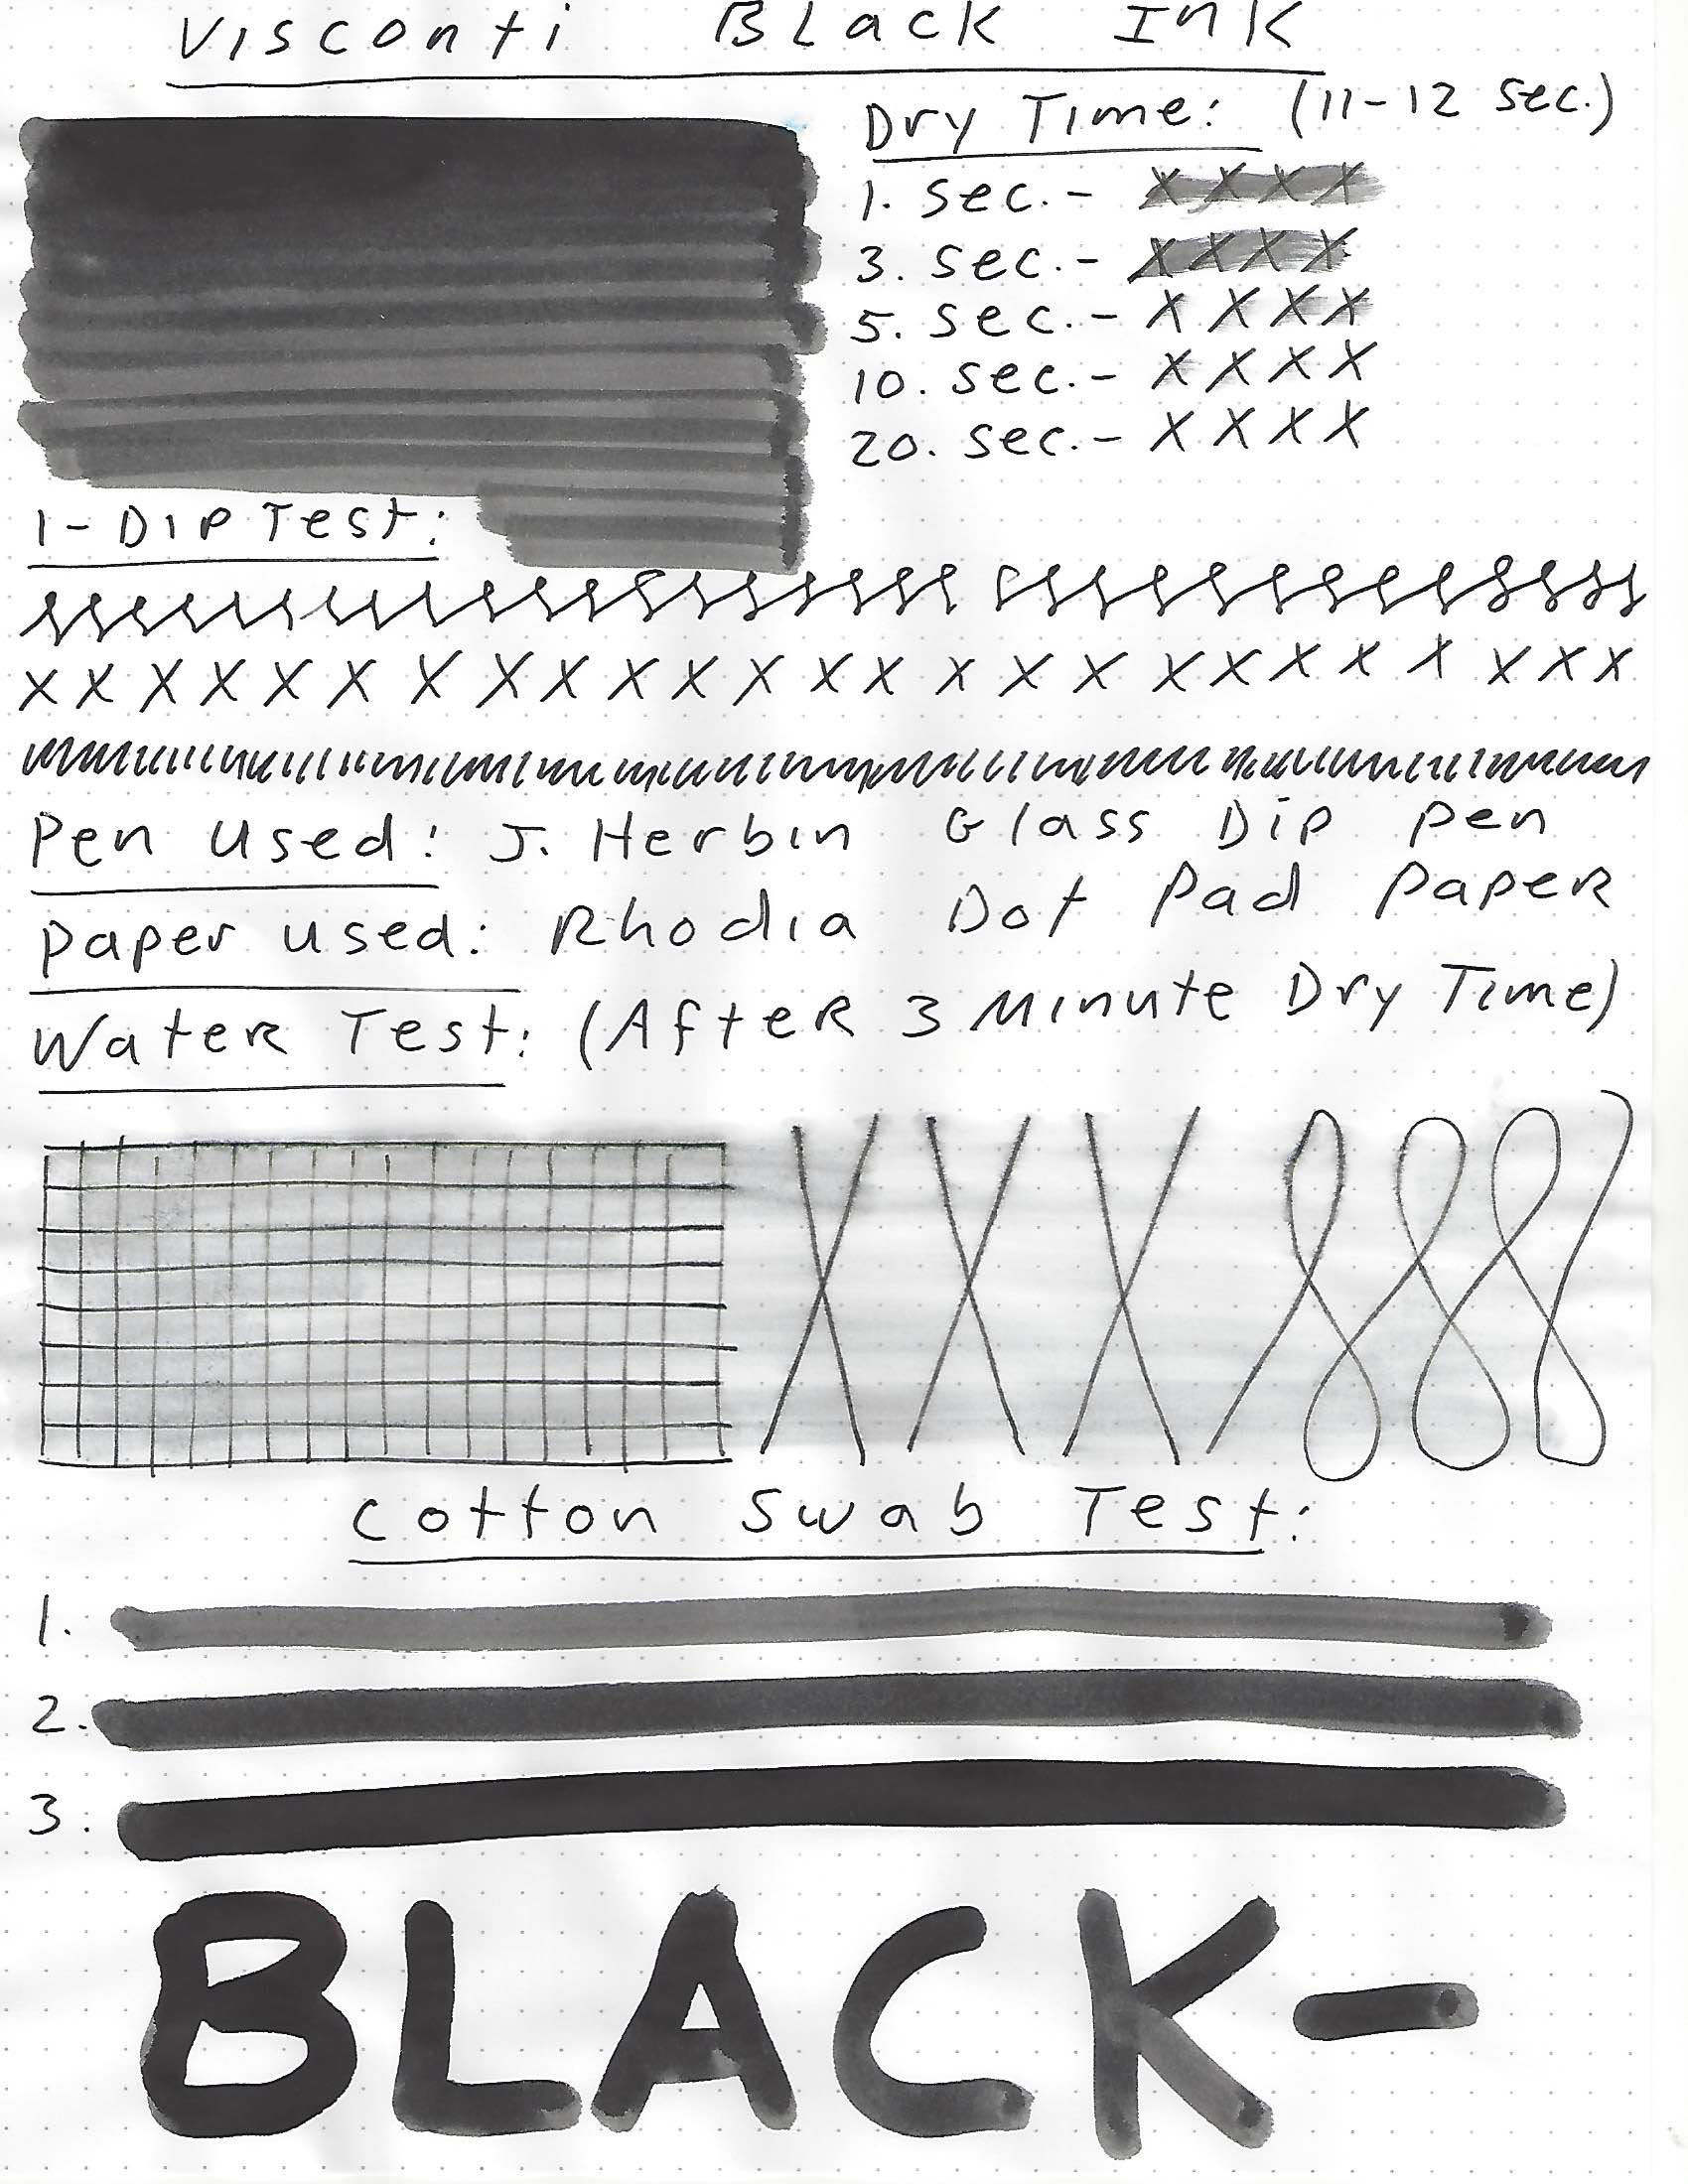 Visconti Black Ink
Dry Time: (11-12 sec.)
1. sec.- X X X X
3. sec.- X X X X
5. sec.- X X X X
10. sec.- X X X X
20. sec.- X X X X
1-Dip Test:
X X X X X X X X X X X X X X X X X X X X X X X X X
Pen Used: J. Herbin Glass Dip Pen
Paper Used: Rhodia Dot Pad Paper
Water Test: (After 3 Minute Dry Time)
X X X
Cotton Swab Test:
1.
2.
3.
BLACK-